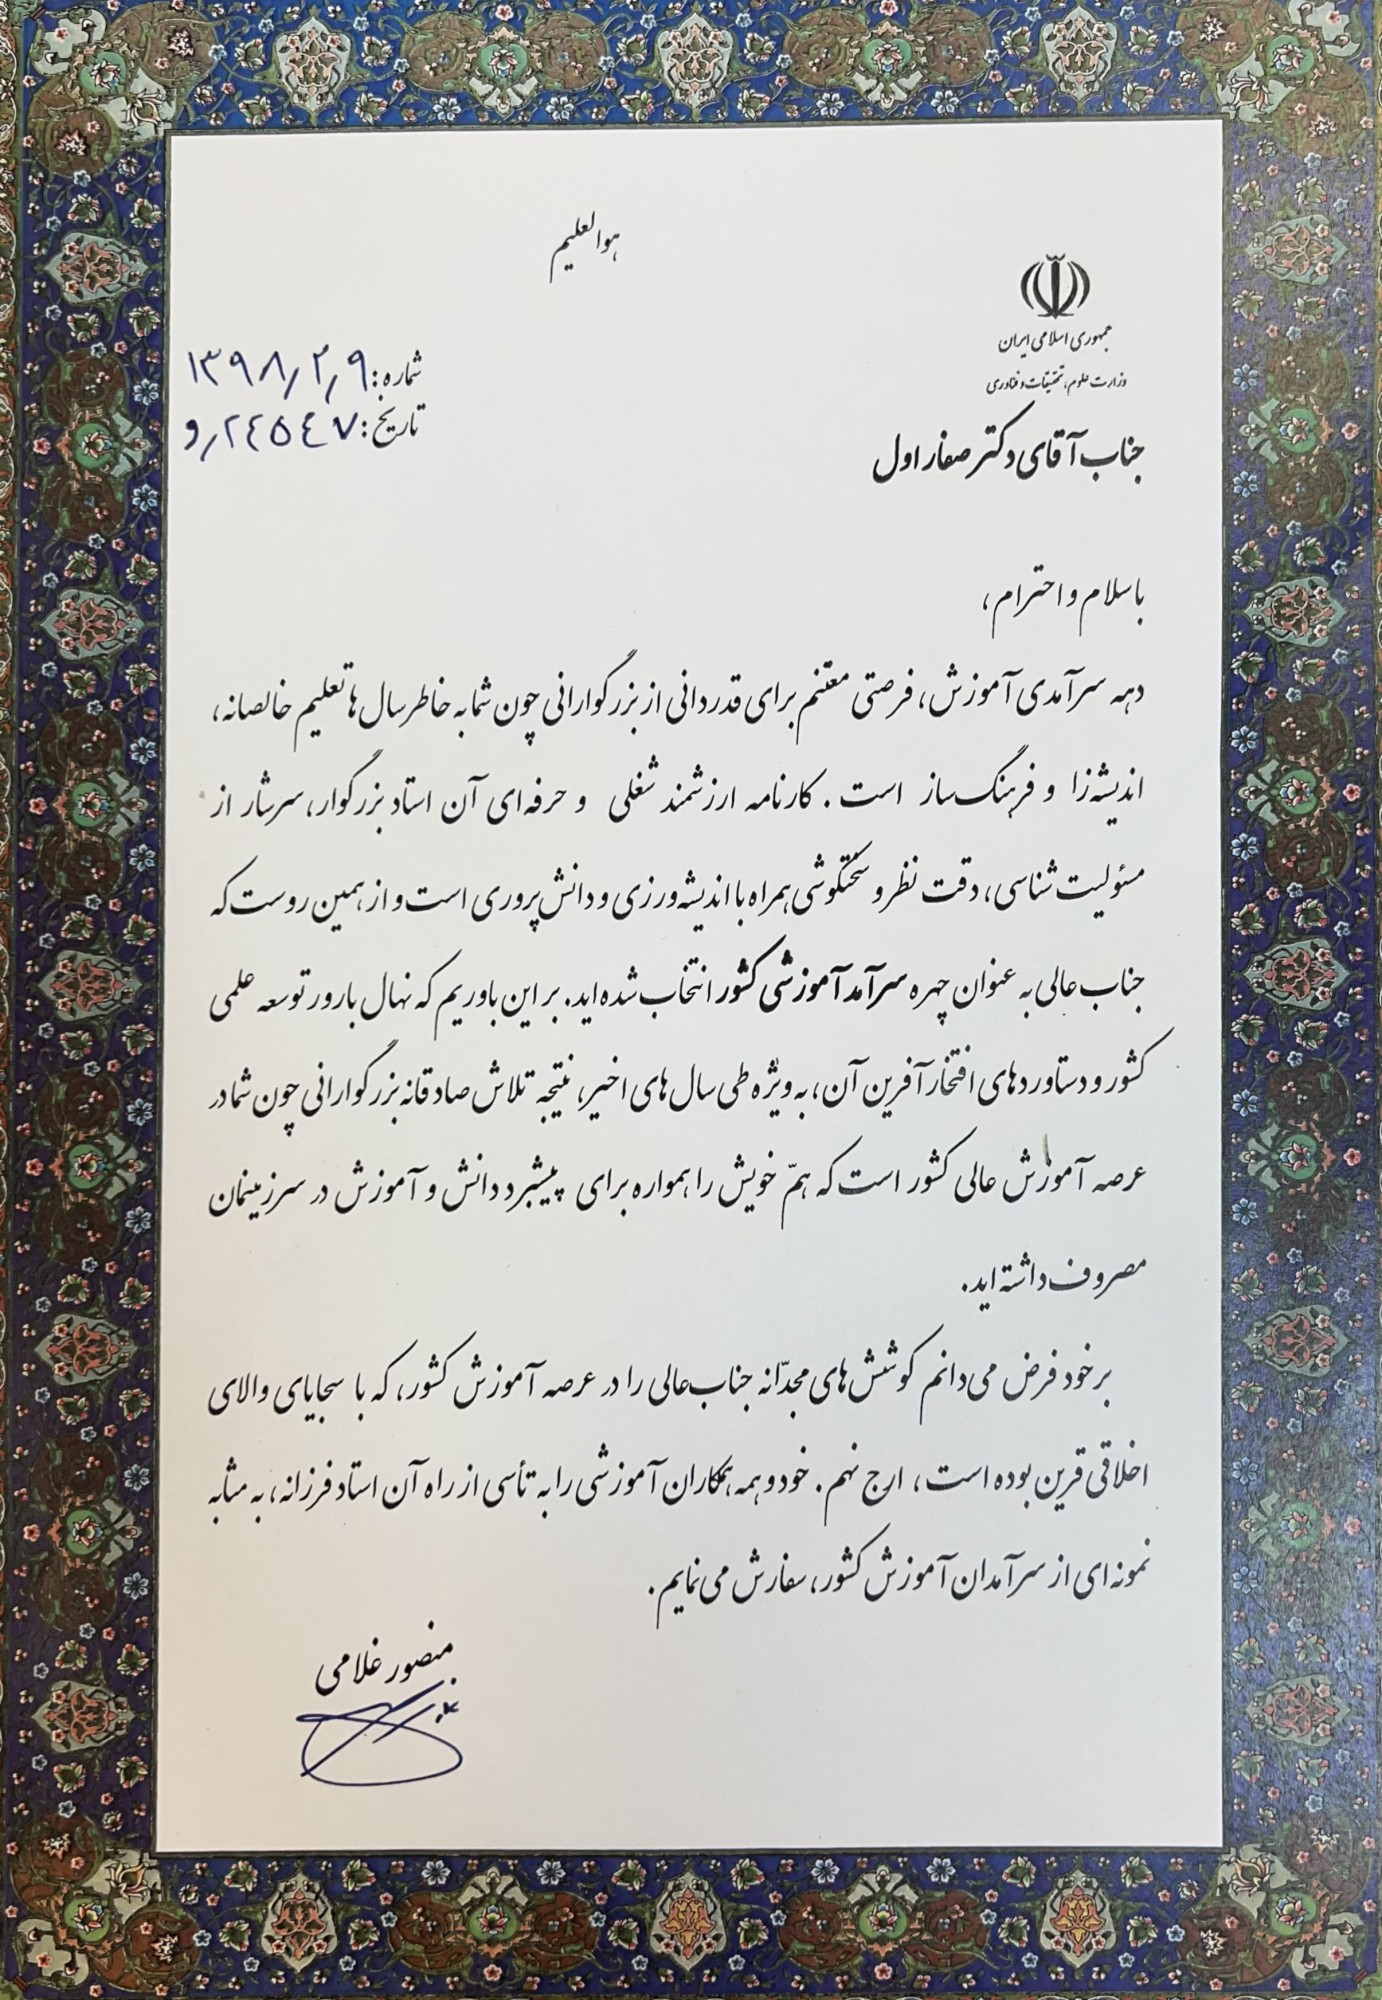 هوالعلیم
جمهوری اسلامی ایران
وزارت علوم، تحقیقات و فناوری
شماره: ۱۳۹۸/۲/۹
تاریخ: ۲۴۵۴۷/و
جناب آقای دکتر صفار اول
با سلام و احترام،
دهه سرآمدی آموزش، فرصتی مغتنم برای قدردانی از بزرگوارانی چون شما به خاطر سال ها تعلیم خالصانه،
اندیشه زا و فرهنگ ساز است. کارنامه ارزشمند شغلی و حرفه ای آن استاد بزرگوار، سرشار از
مسئولیت شناسی، دقت نظر و سختکوشی همراه با اندیشه ورزی و دانش پروری است و از همین روست که
جناب عالی به عنوان چهره سرآمد آموزشی کشور انتخاب شده اید. بر این باوریم که نهال بارور توسعه علمی
کشور و دستاوردهای افتخارآفرین آن، به ویژه طی سال های اخیر، نتیجه تلاش صادقانه بزرگوارانی چون شما در
عرصه آموزش عالی کشور است که همّ خویش را همواره برای پیشبرد دانش و آموزش در سرزمینمان
مصروف داشته اید.
بر خود فرض می دانم کوشش های مجدّانه جناب عالی را در عرصه آموزش کشور، که با سجایای والای
اخلاقی قرین بوده است، ارج نهم. خود و همه همکاران آموزشی را به تأسی از راه آن استاد فرزانه، به مثابه
نمونه ای از سرآمدان آموزش کشور، سفارش می نمایم.
منصور غلامی